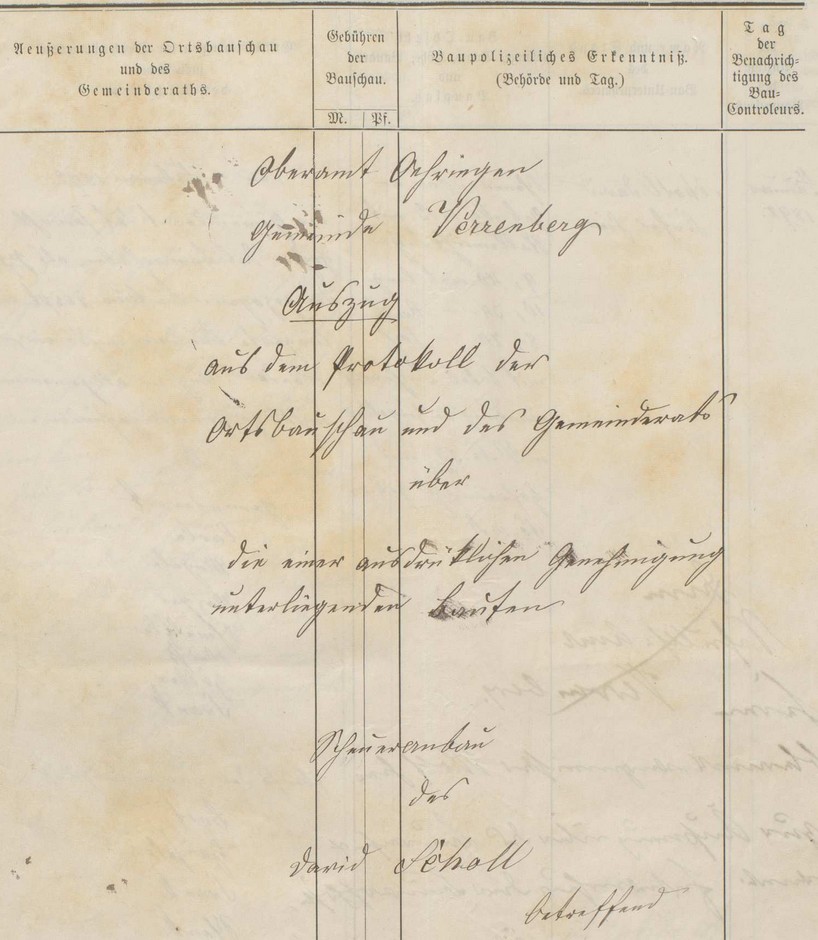 Aeußerungen der Ortsbauschau
und des
Gemeinderaths.
Gebühren
der
Bauschau.
M. Pf.
Baupolizeiliches Erkenntniß.
(Behörde und Tag.)
Tag
der
Benachrich-
tigung des
Bau-
Controleurs.
Oberamt Oehringen
Gemeinde Verrenberg
Auszug
aus dem Protokoll der
Ortsbauschau und des Gemeinderats
über
die einer ausdrüklichen Genehmigung
unterliegenden Bauten
Scheueranbau
des
David Scholl
betreffend